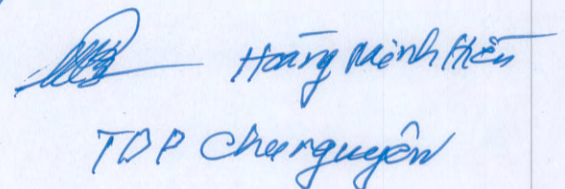 Hoàng Minh Hiền
TDP Chu nguyên